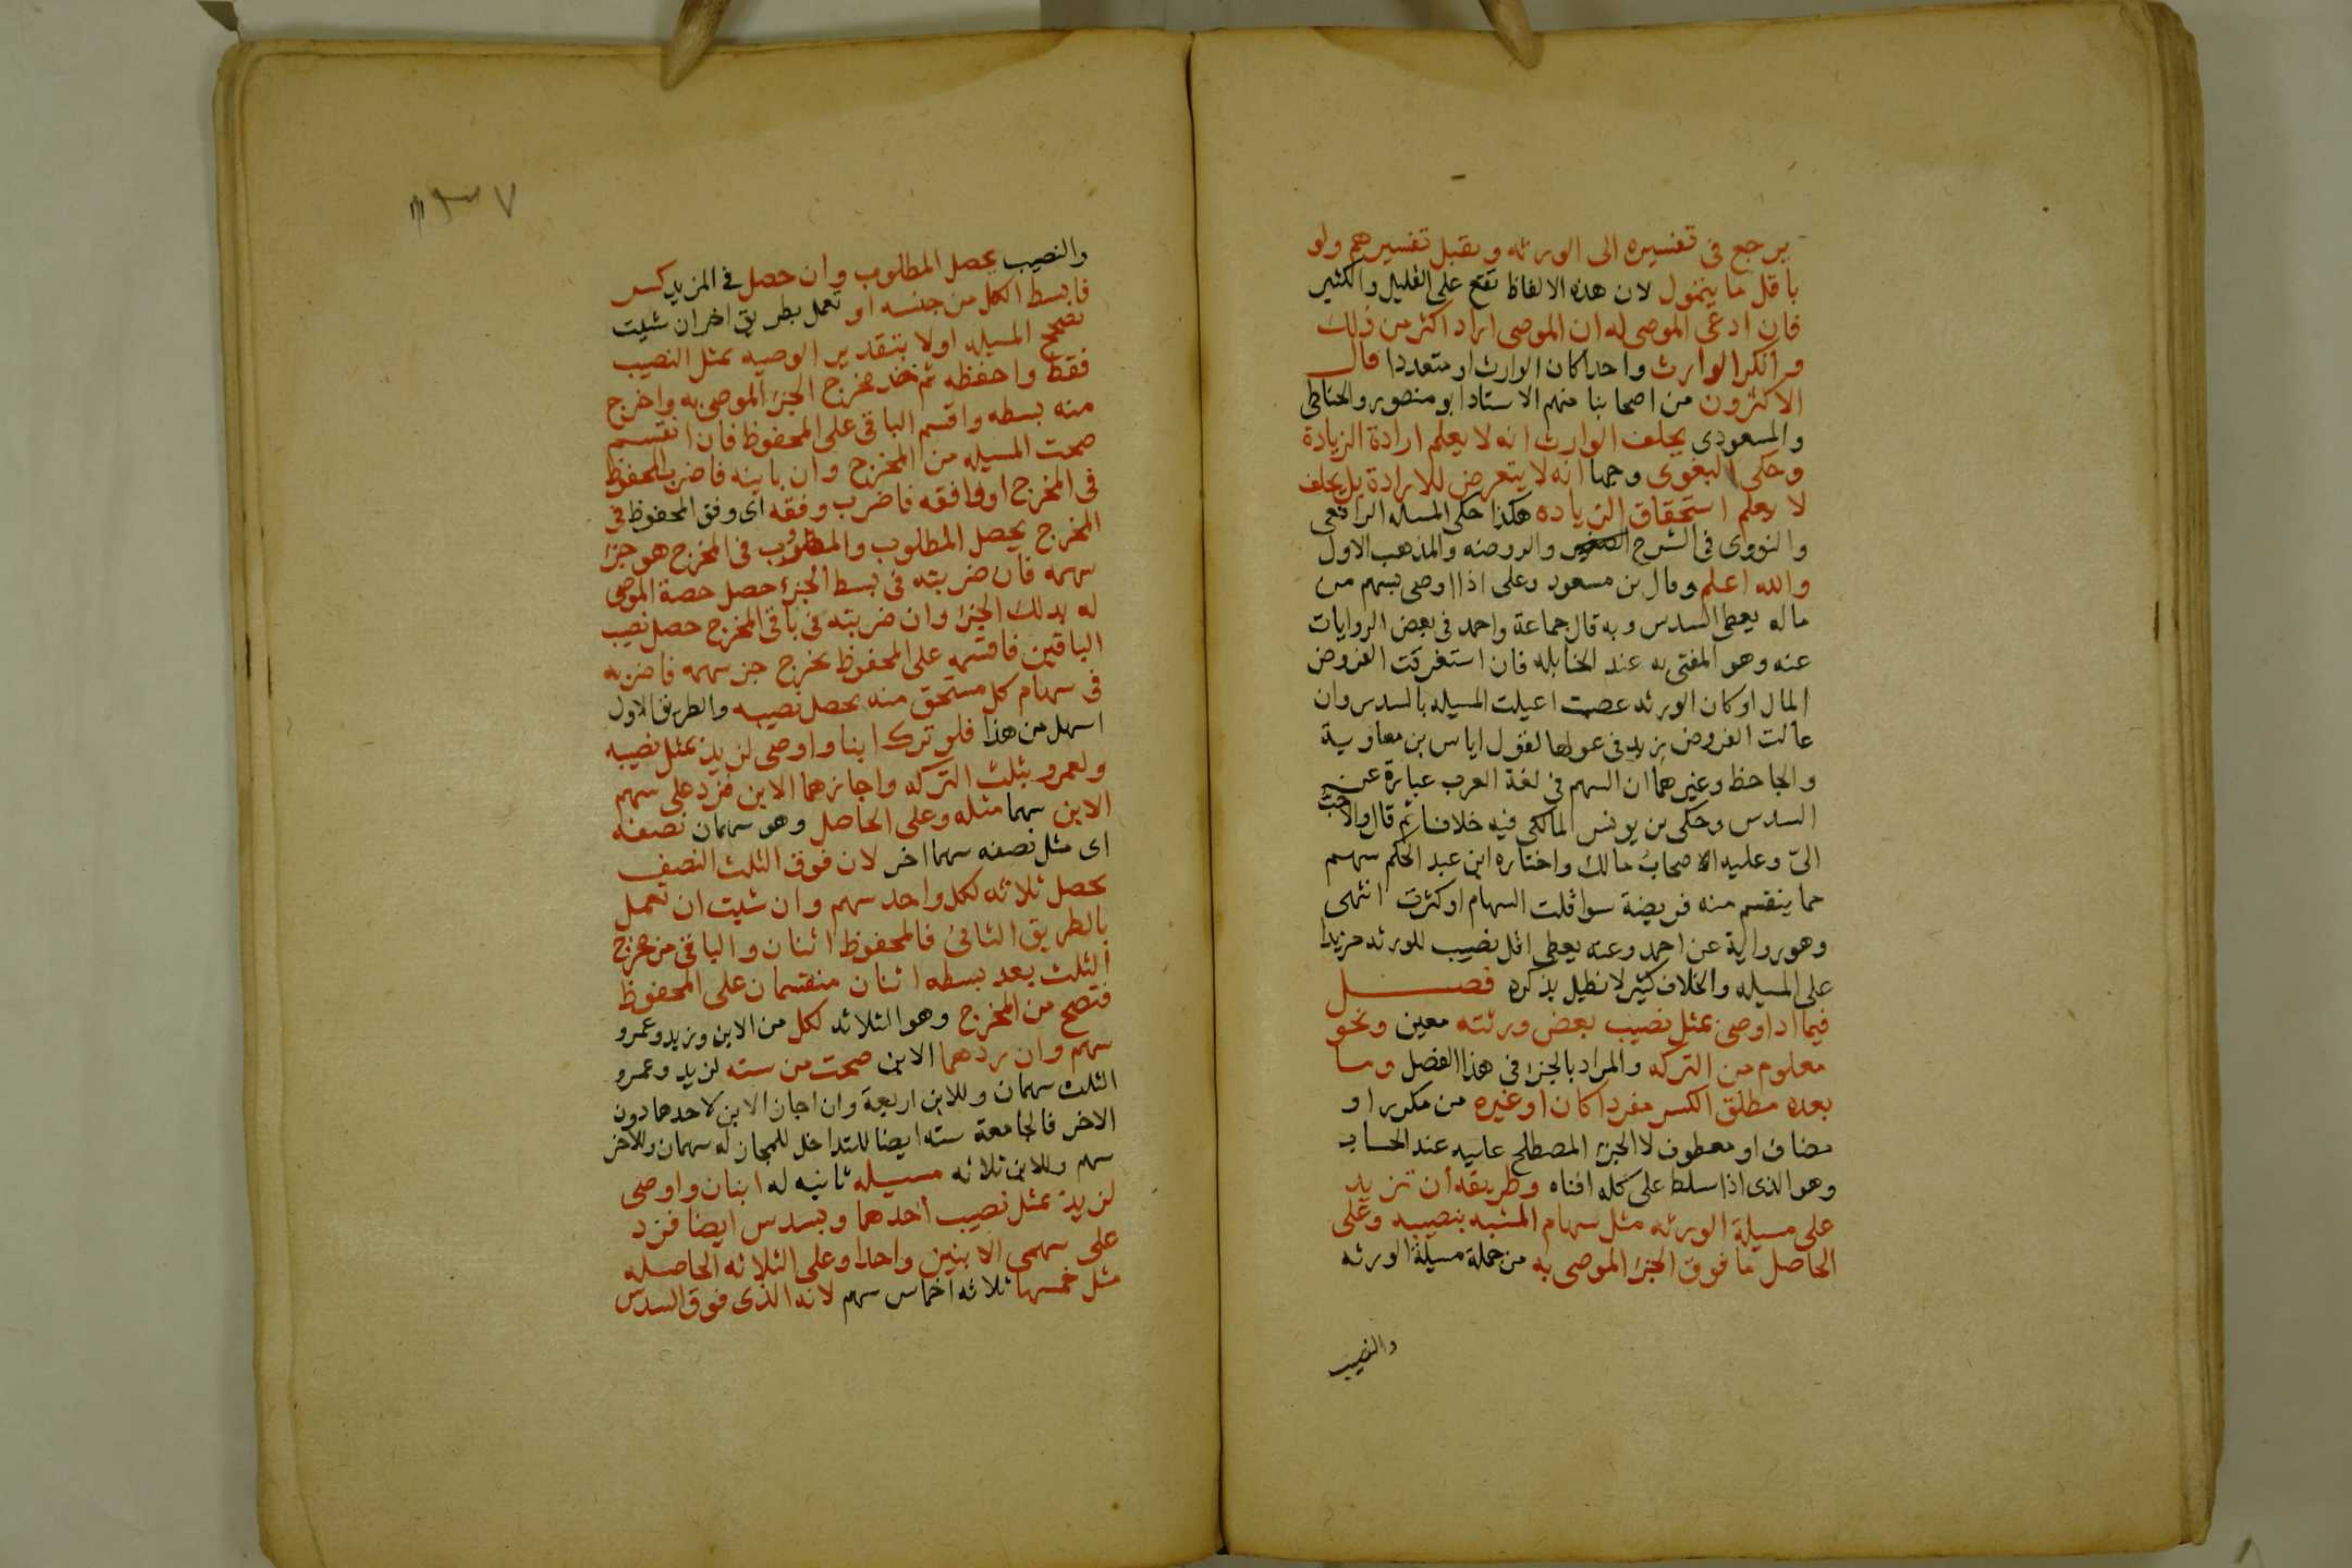 يرجع في تفسيره الى الورثه ويقبل تفسيرهم ولو
باقل ما يتمول لان هذه الالفاظ تقع على القليل والكثير
فان ادعى الموصى له ان الموصى اراد اكثر من ذلك
وانكر الوارث واحدا كان الوارث او متعددا قال
الاكثرون من اصحابنا منهم الاستاد ابو منصور والحناطى
والمسعودى يحلف الوارث انه لا يعلم ارادة الزيادة
وحكى البغوى وجها انه لا يتعرض للارادة بل يحلف
لا يعلم استحقاق الزياده هكذا حكى المسله الرافعى
والنووى فى الشرح الصغير والروضه والمذهب الاول
والله اعلم وقال بن مسعود وعلى اذا اوصى بسهم من
ماله يعطى السدس وبه قال جماعة واحمد فى بعض الروايات
عنه وهو المفتى به عند الحنابله فان استغرقت الفروض
المال او كان الورثه عصبة اعيلت المسيله بالسدس وان
عالت الفروض يزيد فى عولها لقول اياس بن معاوية
والجاحظ وغيرهما ان السهم فى لغة العرب عبارة عن
السدس وحكى بن يونس المالكى فيه خلافا ثم قال والاحب
الىّ وعليه الاصحاب مالك واختاره ابن عبد الحكم سهم
مما ينقسم منه فريضة سوا قلت السهام او كثرت انتهى
وهو رواية عن احمد وعنه يعطى اقل نصيب للورثه مزيدا
على المسيله والخلاف كثير لا نطيل بذكره فصل
فيما اذا اوصى بمثل نصيب بعض ورثته معين ونحو
معلوم من التركه والمراد بالجزا فى هذا الفصل وما
بعده مطلق الكسر مفردا كان او غيره من مكرر او
مضاف او معطوف لا الجزء المصطلح عليه عند الحساب
وهو الذى اذا سلط على كله افناه وطريقه أن تزيد
على مسيلة الورثه مثل سهام المشبه بنصيبه وعلى
الحاصل ما فوق الجزء الموصى به من جملة مسيلة الورثه
والنصيب
١٣٧
والنصيب يحصل المطلوب وان حصل فى المزيد كسر
فابسط الكل من جنسه او تعمل بطريق اخر ان شيت
تصحح المسيله اولا بتقدير الوصيه بمثل النصيب
فقط واحفظه ثم خذ مخرج الجزء الموصى به واخرج
منه بسطه واقسم الباقى على المحفوظ فان انقسم
صحت المسيله من المخرج وان باينه فاضرب المحفوظ
فى المخرج او وافقه فاضرب وفقه اى وفق المحفوظ فى
المخرج يحصل المطلوب والمضروب فى المخرج هو جزء
سهمه فان ضربته فى بسط الجزء حصل حصة الموصى
له بذلك الجزء وان ضربته فى باقى المخرج حصل نصيب
الباقين فاقسمه على المحفوظ يخرج جز سهمه فاضربه
فى سهام كل مستحق منه يحصل نصيبه والطريق الاول
اسهل من هذا فلو ترك ابنا واوصى لزيد بمثل نصيبه
ولعمرو بثلث التركه واجازهما الابن فزد على سهم
الابن سهما مثله وعلى الحاصل وهو سهمان نصفه
اى مثل نصفه سهما اخر لان فوق الثلث النصف
يحصل ثلاثه لكل واحد سهم وان شيت ان تعمل
بالطريق الثانى فالمحفوظ اثنان والباقى من مخرج
الثلث بعد بسطه اثنان منقسمان على المحفوظ
فتصح من المخرج وهو الثلاثه لكل من الابن وزيد وعمرو
سهم وان ردهما الابن صحت من سته لزيد وعمرو
الثلث سهمان وللابن اربعة وان اجاز الابن لاحدهما دون
الاخر فالجامعة سته ايضا للتداخل للمجاز له سهمان وللاخر
سهم وللابن ثلاثه مسيله ثانيه له ابنان واوصى
لزيد بمثل نصيب أحدهما وبسدس ايضا فزد
على سهمى الابنين واحدا وعلى الثلاثه الحاصله
مثل خمسها ثلاثه اخماس سهم لانه الذى فوق السدس